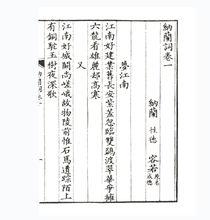 納蘭詞卷一
納蘭 性德 容若
夢江南
江南好建業舊長安紫蓋忽臨雙鷁渡翠華爭擁
六龍看雄麗却高寒
又
江南好城闕尚嵯峨故物陵前惟石馬遺蹤陌上
有銅駝玉樹夜深歌